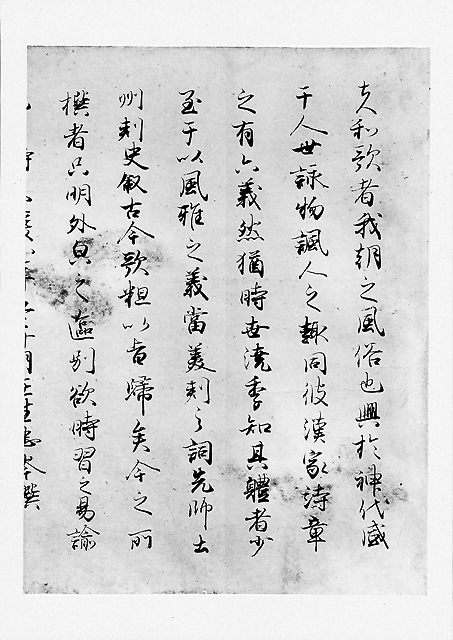 夫和歌者我朝之風俗也興於神代盛
于人世詠物諷人之趣同彼漢家詩章
之有六義然猶時世澆季知其體者少
至于以風雅之義當美刺之詞先師土
州刺史叙古今歌粗以旨歸矣今之所
撰者只明外皃之區別欲時習之易諭
忠岑撰